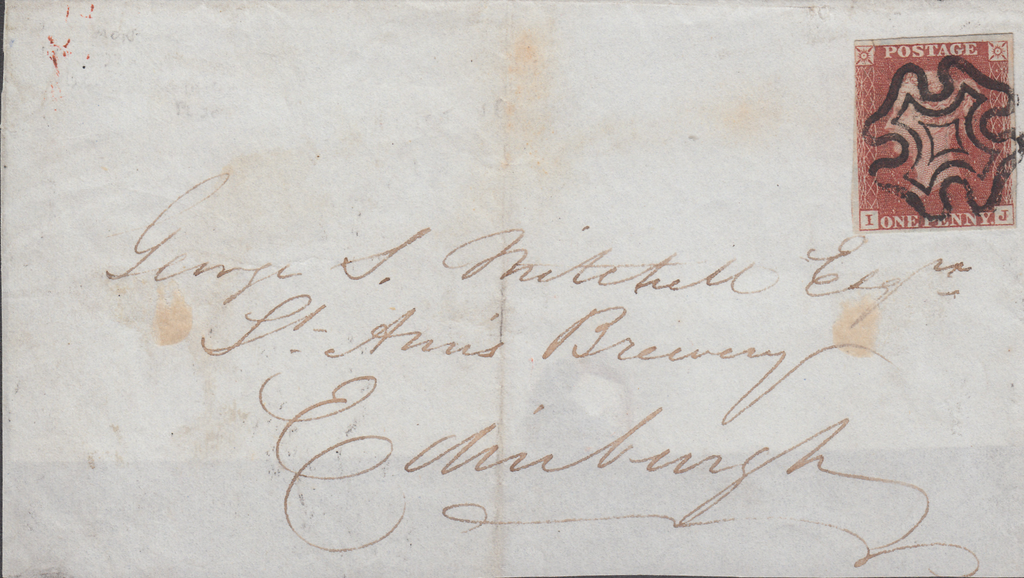 POSTAGE
I ONE PENNY. J
George S. Mitchell Esqre
St. Ann's Brewery
Edinburgh